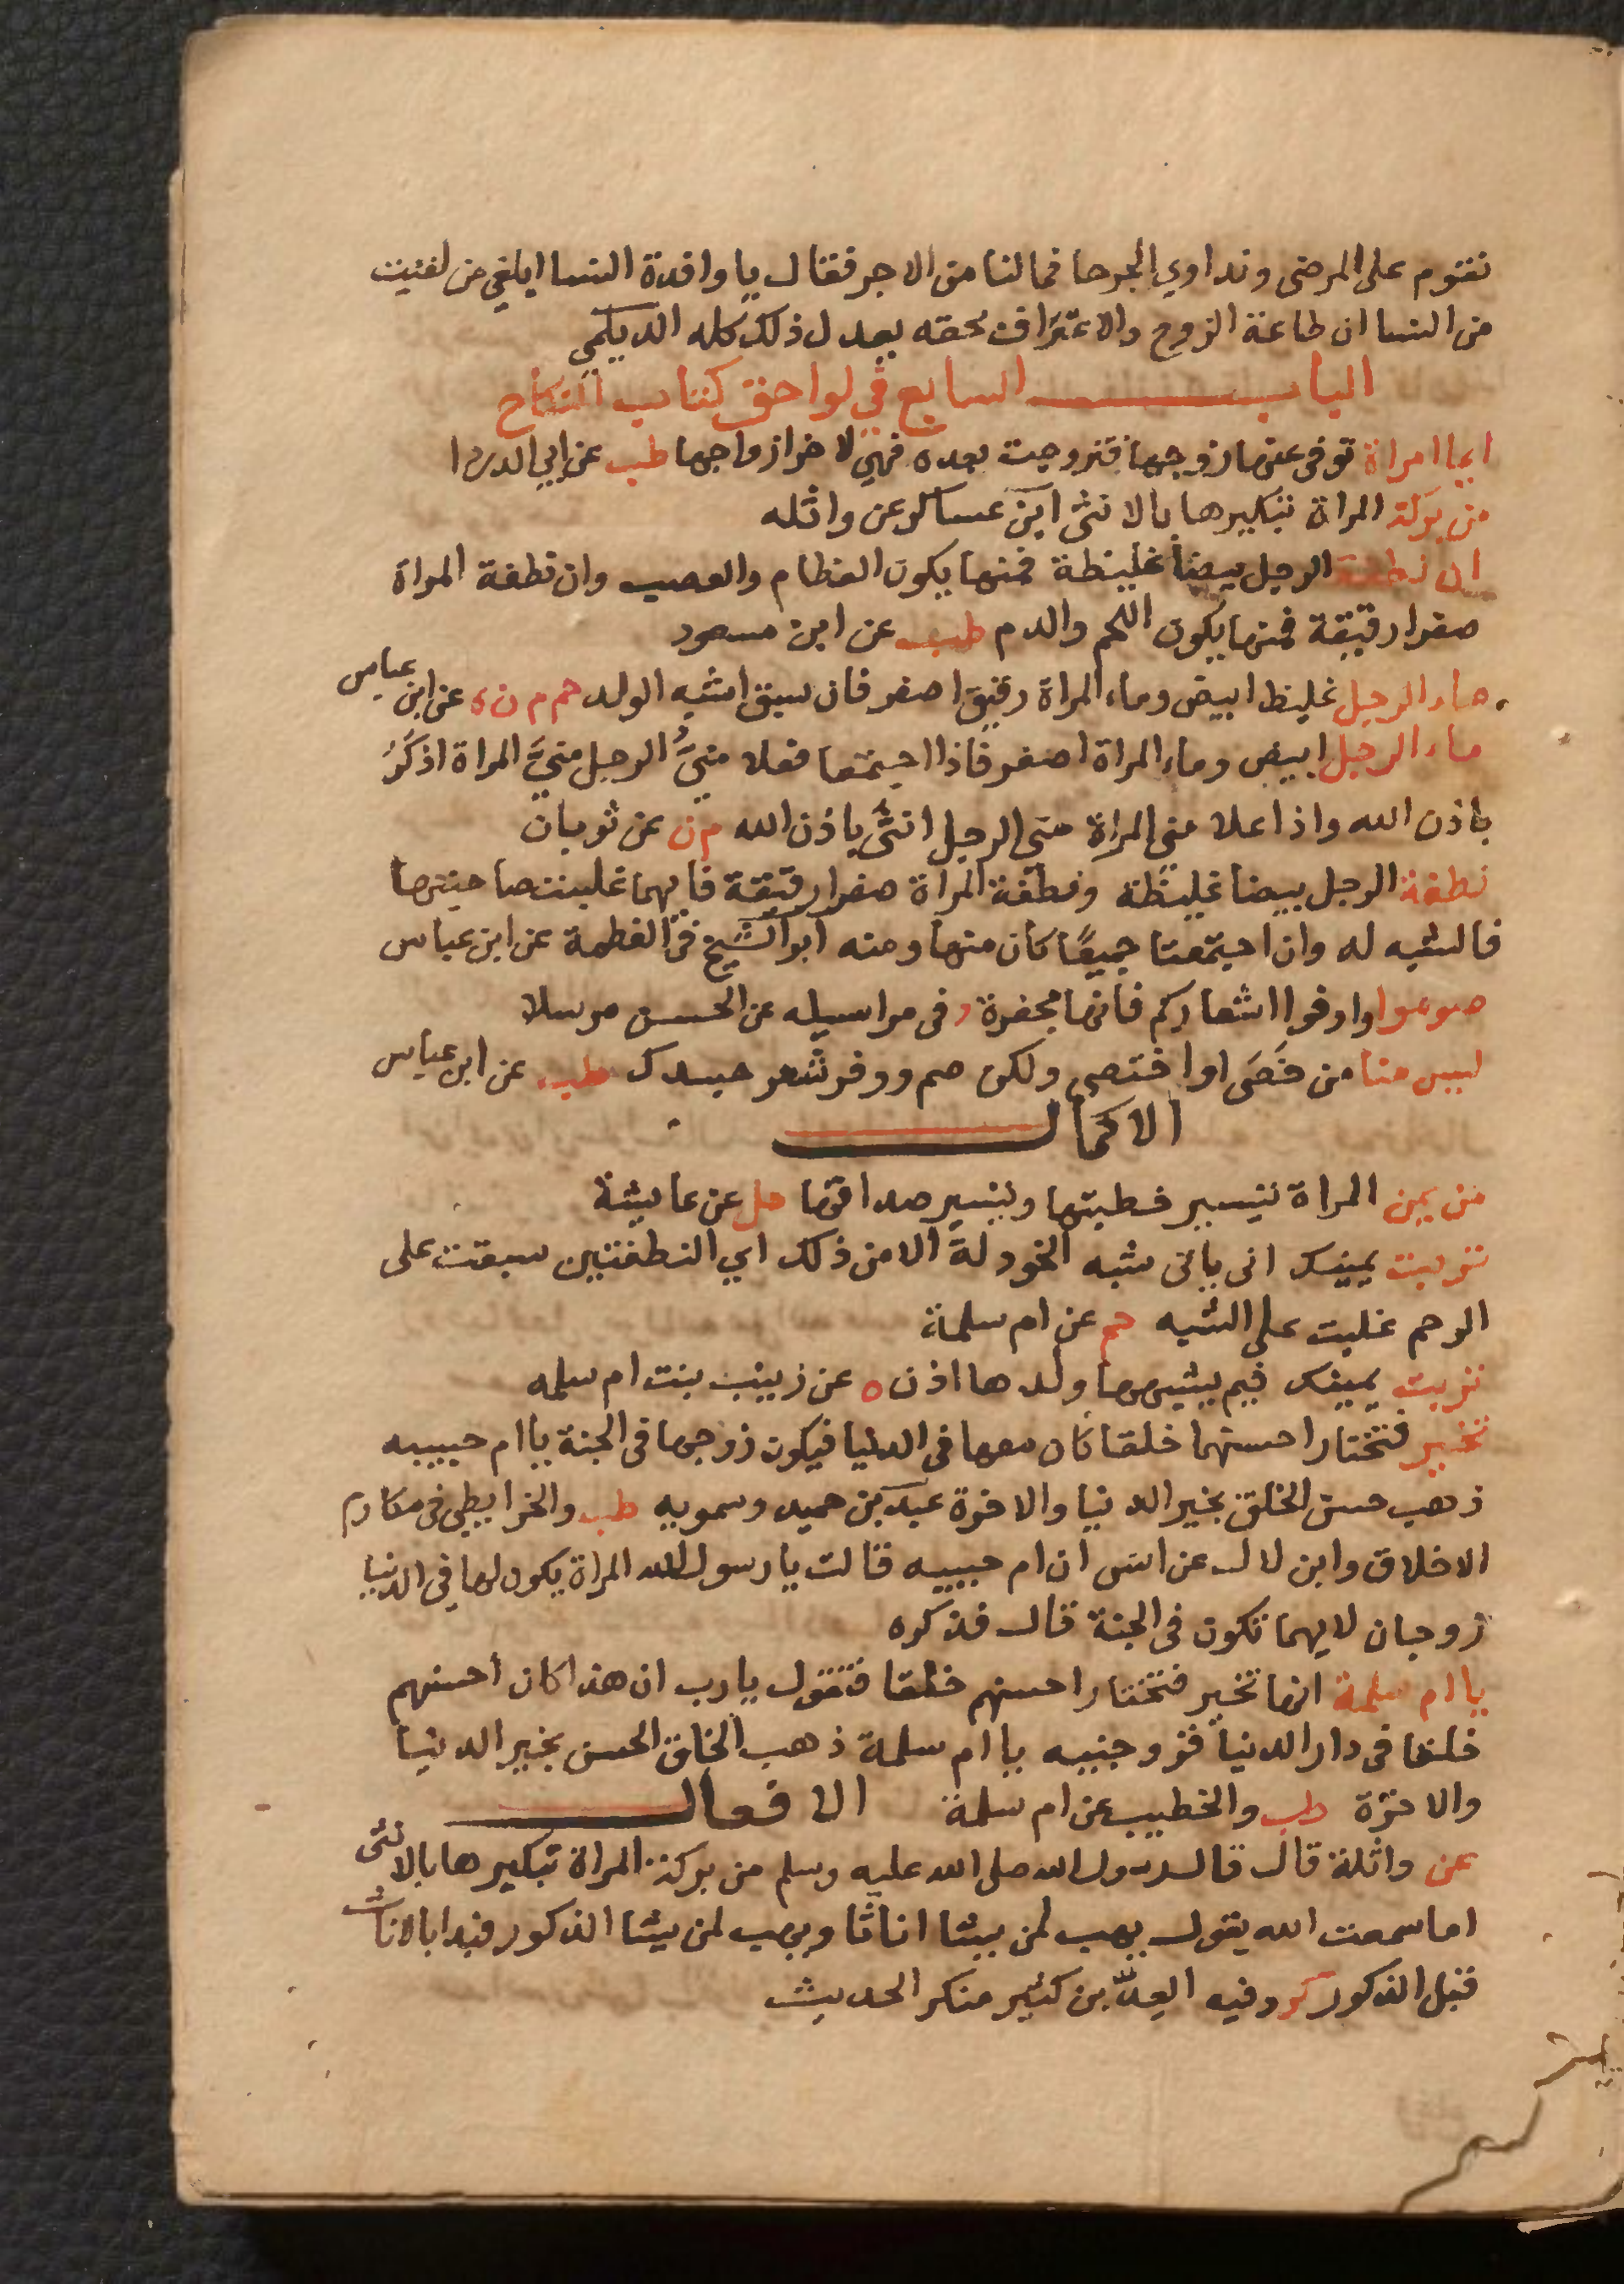 نقوم على المرضى ونداوي الجرحا فمالنا من الاجر فقال يا وافدة النسا ابلغي من لقيت
من النسا ان طاعة الزوج والاعتراف بحقه يعدل ذلك كله الديلمي
الباب السابع في لواحق كتاب النكاح
ايما امراة توفى عنها زوجها فتزوجت بعده فهي لاخر ازواجها طب عن ابي الدردا
من بركة المراة تبكيرها بالانثى ابن عساكر عن واثله
ان نطفة الرجل بيضا غليظة فمنها يكون العظام والعصب وان نطفة المراة
صفرا رقيقة فمنها يكون اللحم والدم طب عن ابن مسعود
ماء الرجل غليظ ابيض وماء المراة رقيق اصفر فان سبق اشبه الولد حم م ن ه عن ابن عباس
ماء الرجل ابيض وماء المراة اصفر فاذا اجتمعا فعلا منيُّ الرجل منيَّ المراة اذكرُ
باذن الله واذا علا مني المراة مني الرجل انثى باذن الله م ن عن ثوبان
نطفة الرجل بيضا غليظة ونطفة المراة صفرا رقيقة فايهما غلبت صاحبتها
فالشبه له وان اجتمعتا جميعًا كان منها ومنه ابو الشيخ في العظمة عن ابن عباس
صوموا واوفوا اشعاركم فانها مجفرة د في مراسيله عن الحسن مرسلا
ليس منا من خَصَى اوا ختصى ولكن صم ووفر شعر جسدك طب عن ابن عباس
الاكمال
من يمن المراة تيسير خطبتها وتيسير صداقها حل عن عايشة
تربت يمينك انى ياتى شبه الخولة الا من ذلك اي النطفتين سبقت على
الرحم غلبت على الشبه حم عن ام سلمة
تربت يمينك فبم يشبهها ولدها اذن ه عن زينب بنت ام سلمه
تخير فتختار احسنهما خلقا كان معها في الدنيا فيكون زوجها في الجنة يا ام حبيبه
ذهب حسن الخلق بخير الدنيا والاخرة عبد بن حميد وسمويه طب والخرايطي في مكارم
الاخلاق وابن لال عن انس ان ام حبيبه قالت يا رسول الله المراة يكون لها في الدنيا
زوجان لايهما تكون في الجنة قال فذكره
يا ام سلمة انها تخير فتختار احسنهم خلقا فتقول يارب ان هذا كان احسنهم
خلقا في دار الدنيا فزوجنيه يا ام سلمة ذهب الخلق الحسن بخير الدنيا
والاخرة طب والخطيب عن ام سلمة الافعال
عن واثلة قال قال رسول الله صلى الله عليه وسلم من بركة المراة تبكيرها بالانثى
اما سمعت الله يقول يهب لمن يشا اناثا ويهب لمن يشا الذكور فبدا بالاناث
قبل الذكور كر وفيه العلا بن كثير منكر الحديث